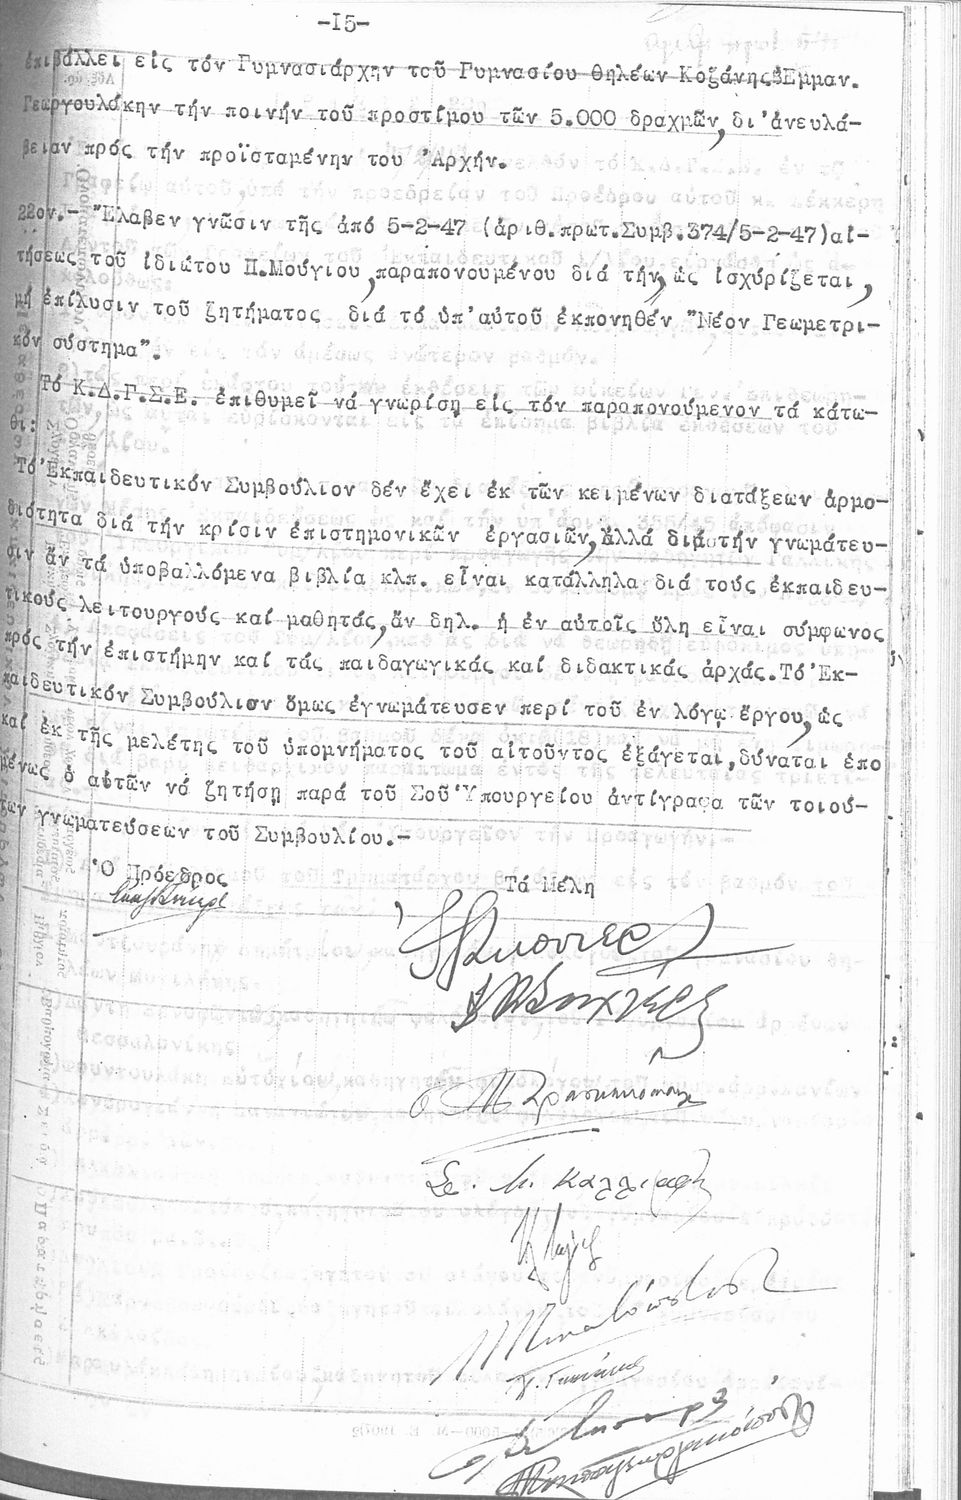 -15-
ἐπιβάλλει εἰς τόν Γυμνασιάρχην τοῦ Γυμνασίου θηλέων Κοζάνης Ἐμμαν.
Γεωργουλάκην τήν ποινήν τοῦ προστίμου τῶν 5.000 δραχμῶν, δι'ἀνευλά-
βειαν πρός τήν προϊσταμένην του Ἀρχήν.
22ον.- Ἔλαβεν γνῶσιν τῆς ἀπό 5-2-47 (ἀριθ.πρωτ.Συμβ.374/5-2-47)αἰ-
τήσεως τοῦ ἰδιώτου Π.Μούγιου, παραπονουμένου διά τήν, ὡς ἰσχύρίζεται,
μή ἐπίλυσιν τοῦ ζητήματος διά τό ὑπ'αὐτοῦ ἐκπονηθέν "Νέον Γεωμετρι-
κόν σύστημα".
Τό Κ.Δ.Γ.Σ.Ε. ἐπιθυμεῖ νά γνωρίσῃ εἰς τόν παραπονούμενον τά κάτω-
θι:
Τό Ἐκπαιδευτικόν Συμβούλιον δέν ἔχει ἐκ τῶν κειμένων διατάξεων ἁρμο-
διότητα διά τήν κρίσιν ἐπιστημονικῶν ἐργασιῶν, ἀλλά διά τήν γνωμάτευ-
σιν ἄν τά ὑποβαλλόμενα βιβλία κλπ. εἶναι κατάλληλα διά τούς ἐκπαιδευ-
τικούς λειτουργούς καί μαθητάς, ἄν δηλ. ἡ ἐν αὐτοῖς ὕλη εἶναι σύμφωνος
πρός τήν ἐπιστήμην καί τάς παιδαγωγικάς καί διδακτικάς ἀρχάς.Τό Ἐκ-
παιδευτικόν Συμβούλιον ὅμως ἐγνωμάτευσεν περί τοῦ ἐν λόγῳ ἔργου, ὡς
καί ἐκ τῆς μελέτης τοῦ ὑπομνήματος τοῦ αἰτοῦντος ἐξάγεται, δύναται ἑπο
μένως ὁ αὐτῶν νά ζητήσῃ παρά τοῦ Σοῦ Ὑπουργείου ἀντίγραφα τῶν τοιού-
των γνωματεύσεων τοῦ Συμβουλίου.-
Ὁ Πρόεδρος Τά Μέλη